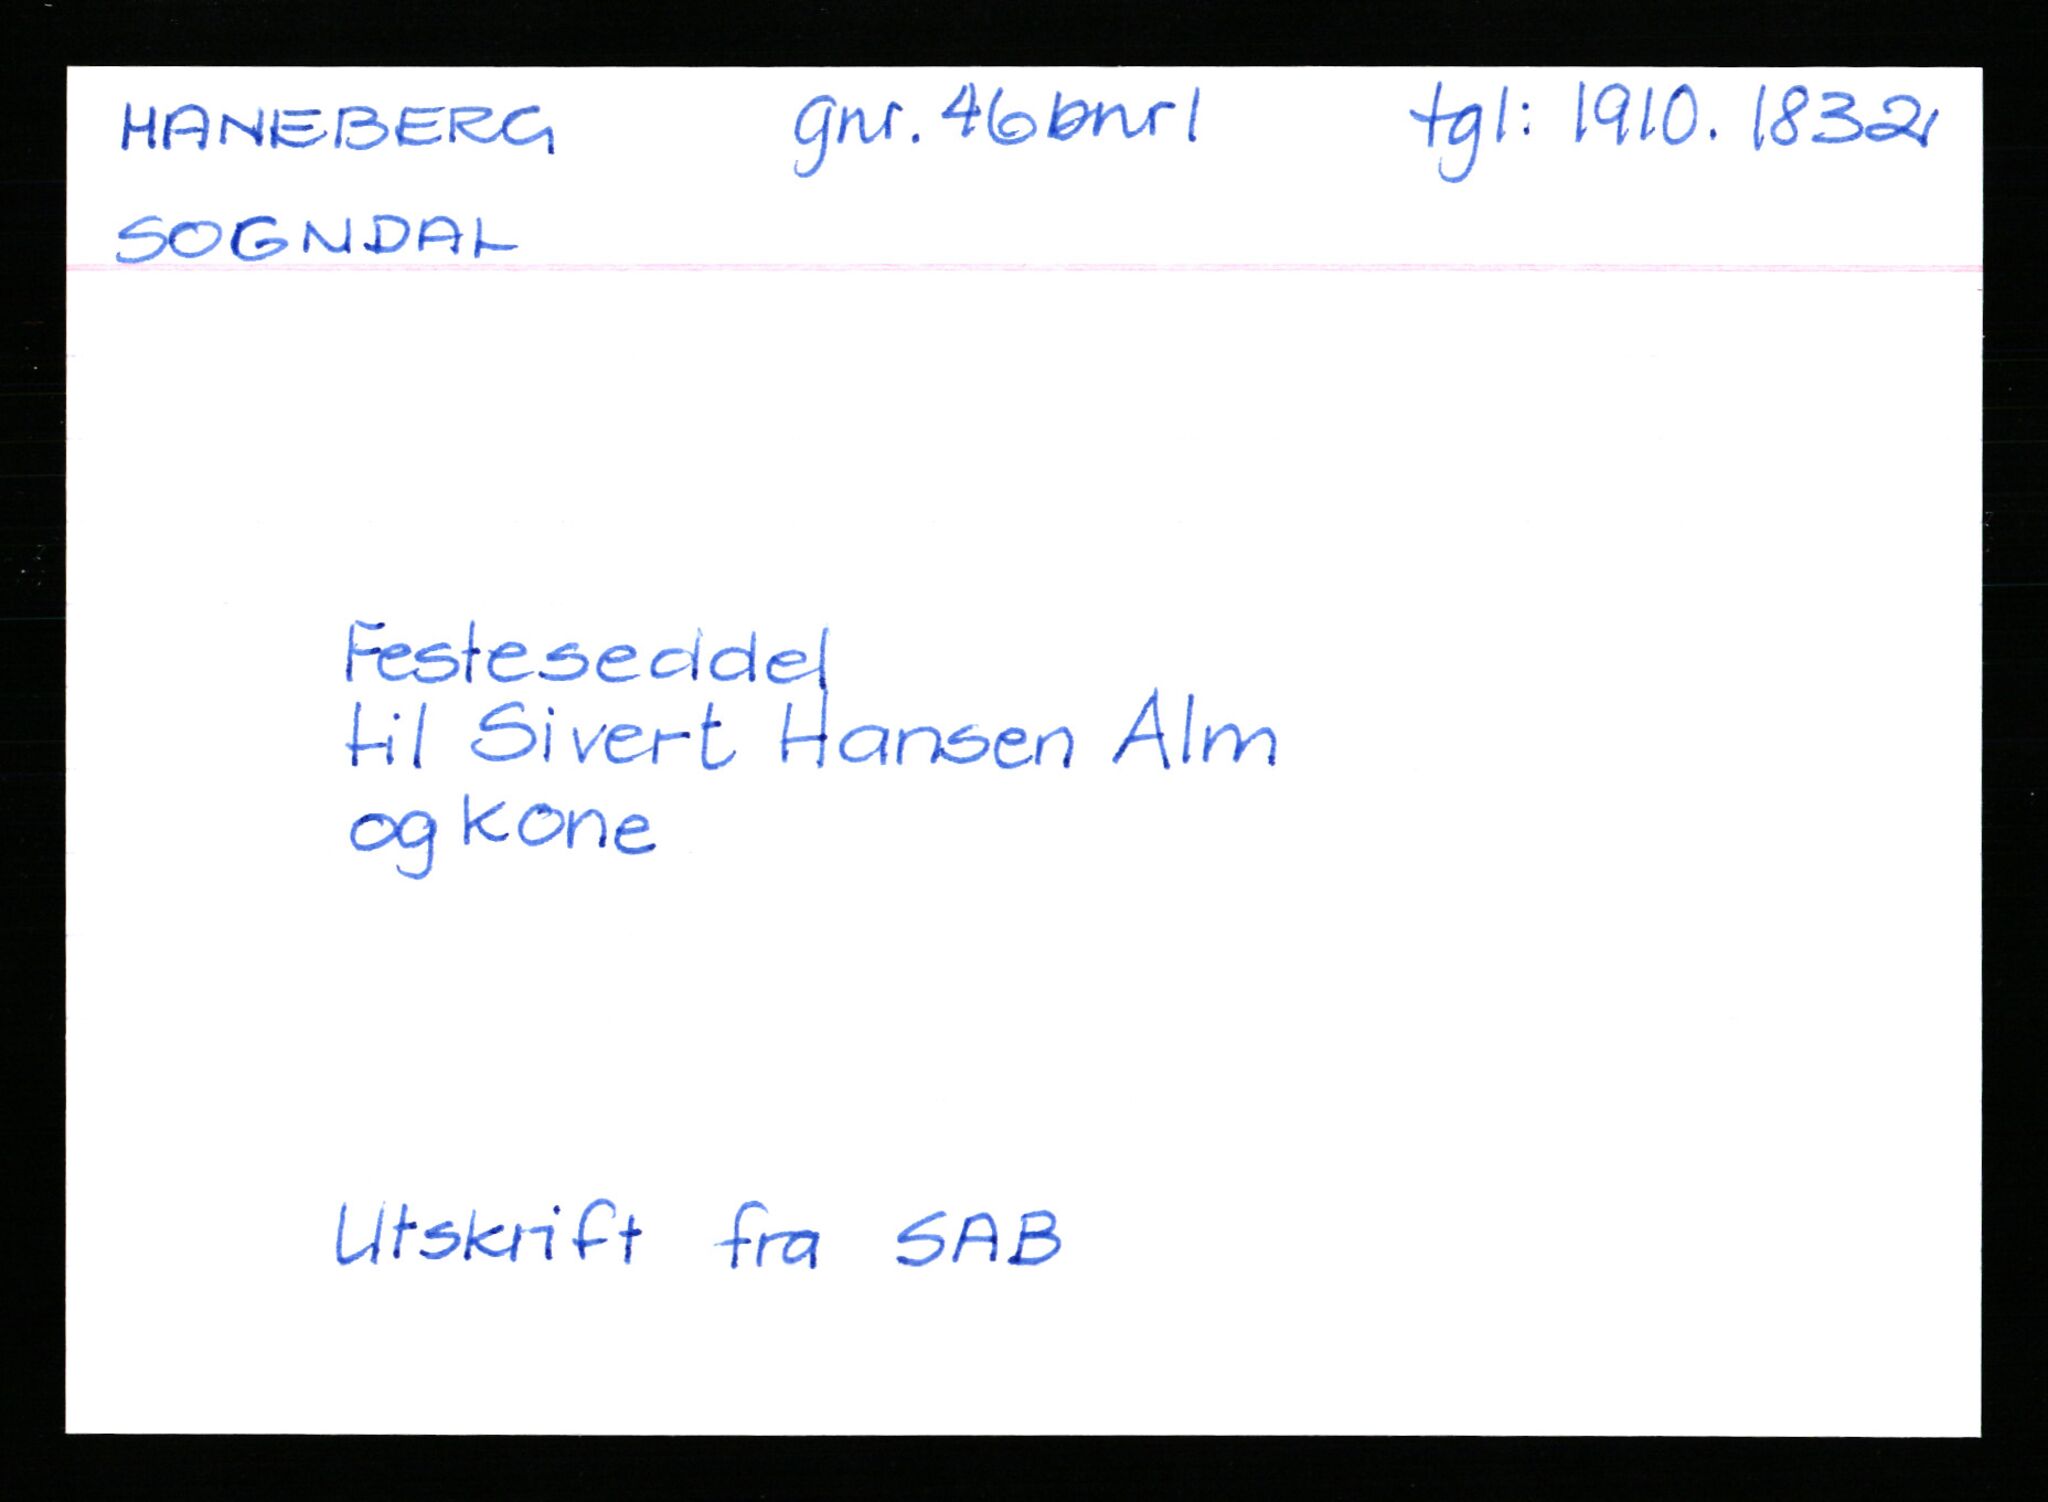 HANEBERG gnr. 46 bnr 1 tgl: 1910. 1832
SOGNDAL
Festeseddel
til Sivert Hansen Alm
og kone
Utskrift fra SAB